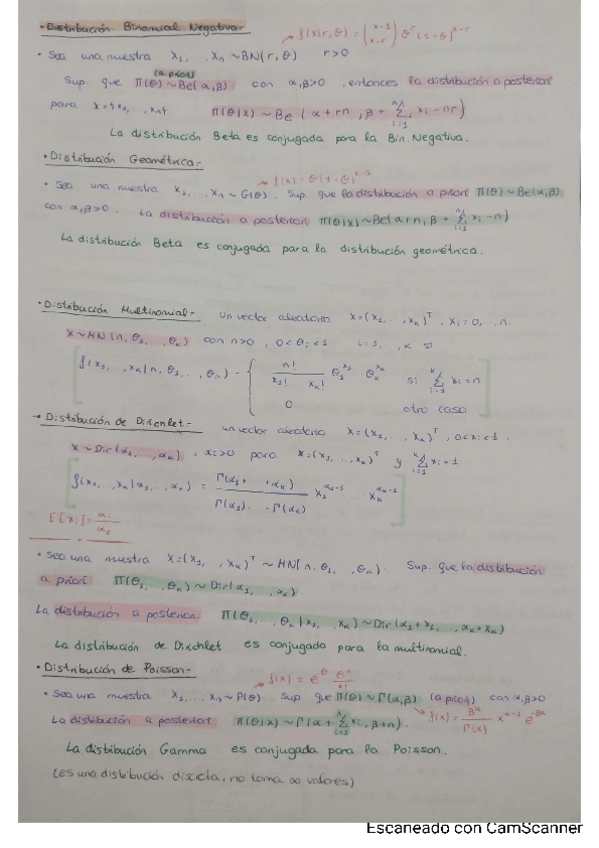 • Distribución Binomial Negativa.- f(x|r,θ) = (x-1 x-r) θ^r (1-θ)^{x-r}
• Sea una muestra X₁,...,Xₙ ~ BN(r,θ) r>0
Sup. que Π(θ) ~ Be(α,β) (a priori) con α,β>0, entonces la distribución a posteriori
para x=(x₁,...,xₙ) Π(θ|x) ~ Be(α+rn, β+Σxᵢ-nr)
La distribución Beta es conjugada para la Bin. Negativa.
• Distribución Geométrica.- f(x)=θ(1-θ)^{x-1}
• Sea una muestra X₁,...,Xₙ ~ G(θ). Sup. que la distribución a priori Π(θ) ~ Be(α,β)
con α,β>0. La distribución a posteriori Π(θ|x) ~ Be(α+n, β+Σxᵢ-n)
La distribución Beta es conjugada para la distribución geométrica.
• Distribución Multinomial.- un vector aleatorio X=(X₁,...,Xₖ)ᵀ, Xᵢ=0,..,n.
X ~ MN(n,θ₁,...,θₖ) con n>0, 0<θᵢ<1 i=1,..,k si
n!
x₁! xₖ! θ₁^{x₁} θₖ^{xₖ} si Σxᵢ=n
0 otro caso
→ Distribución de Dirichlet.- un vector aleatorio X=(X₁,...,Xₖ)ᵀ, 0<xᵢ<1.
X ~ Dir(α₁,...,αₖ), αᵢ>0 para X=(X₁,...,Xₖ)ᵀ y
f(x₁,...,xₖ|α₁,...,αₖ) = Γ(α₁+ +αₖ) / Γ(α₁)...Γ(αₖ) x₁^{α₁-1} xₖ^{αₖ-1}
E[Xᵢ]=αᵢ/α₀
• Sea una muestra X=(X₁,..,Xₖ)ᵀ ~ MN(n,θ₁,..,θₖ). Sup. que la distribución
a priori Π(θ₁,..,θₖ) ~ Dir(α₁,..,αₖ).
La distribución a posteriori Π(θ₁,..,θₖ|x₁,..,xₖ) ~ Dir(α₁+x₁,..,αₖ+xₖ)
La distribución de Dirichlet es conjugada para la multinomial.
• Distribución de Poisson.-
• Sea una muestra X₁,...,Xₙ ~ P(θ) Sup que Π(θ) ~ Γ(α,β) (a priori) con α,β>0
La distribución a posteriori Π(θ|x) ~ Γ(α+Σxᵢ, β+n).
La distribución Gamma es conjugada para la Poisson.
(es una distribución discreta, no toma ∞ valores)
Escaneado con CamScanner